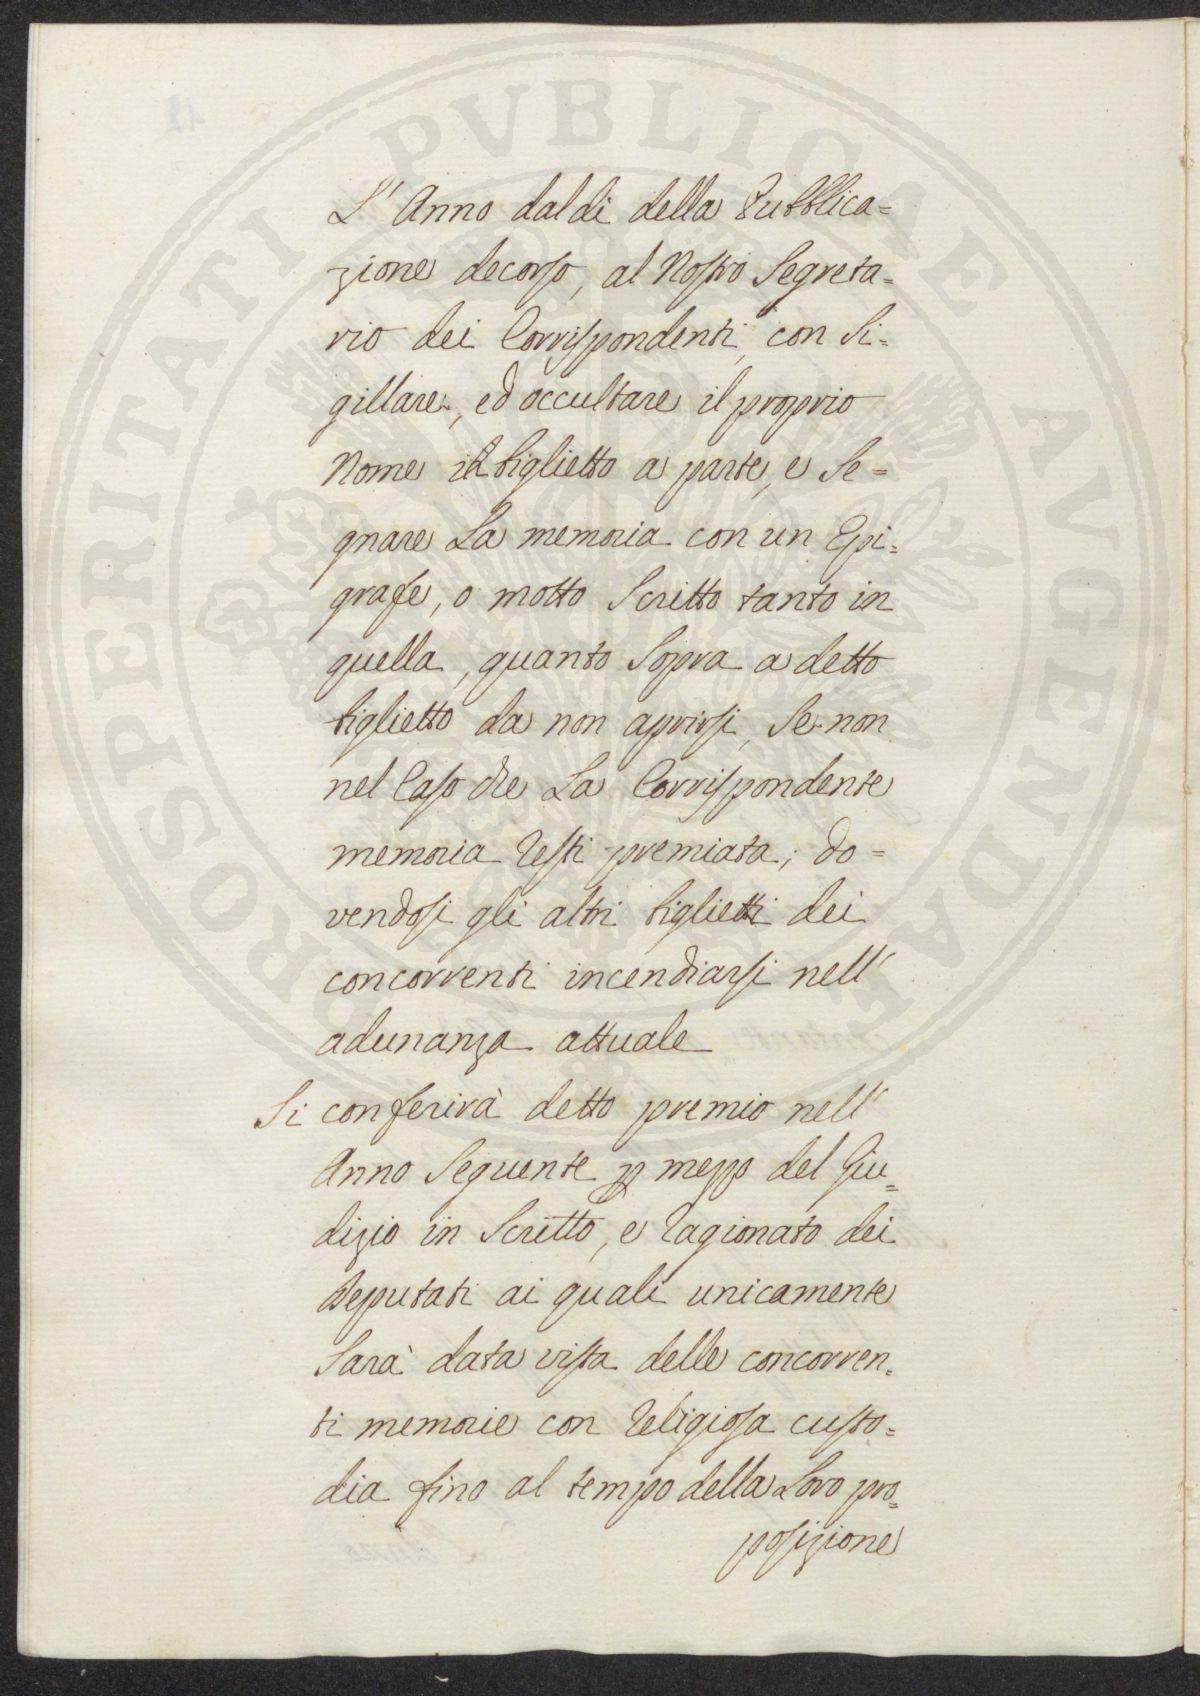 PROSPERITATI PVBLICAE AVGENDAE
L' Anno dal di della Pubblica=
zione decorso, al Nostro Segreta=
rio dei Corrispondenti, con Si=
gillare, ed occultare il proprio
Nome in biglietto a parte, e Se=
gnare La memoria con un Epi=
grafe, o motto Scritto tanto in
quella, quanto Sopra a detto
biglietto da non aprirsi, Se non
nel Caso che La Corrispondente
memoria resti premiata; do=
vendosi gli altri biglietti dei
concorrenti incendiarsi nell'
adunanza attuale
Si conferirà detto premio nell'
Anno Seguente p mezzo del Giu=
dizio in Scritto, e ragionato dei
Deputati ai quali unicamente
Sarà data vista delle concorren=
ti memorie con religiosa custo=
dia fino al tempo della Loro pro=
posizione